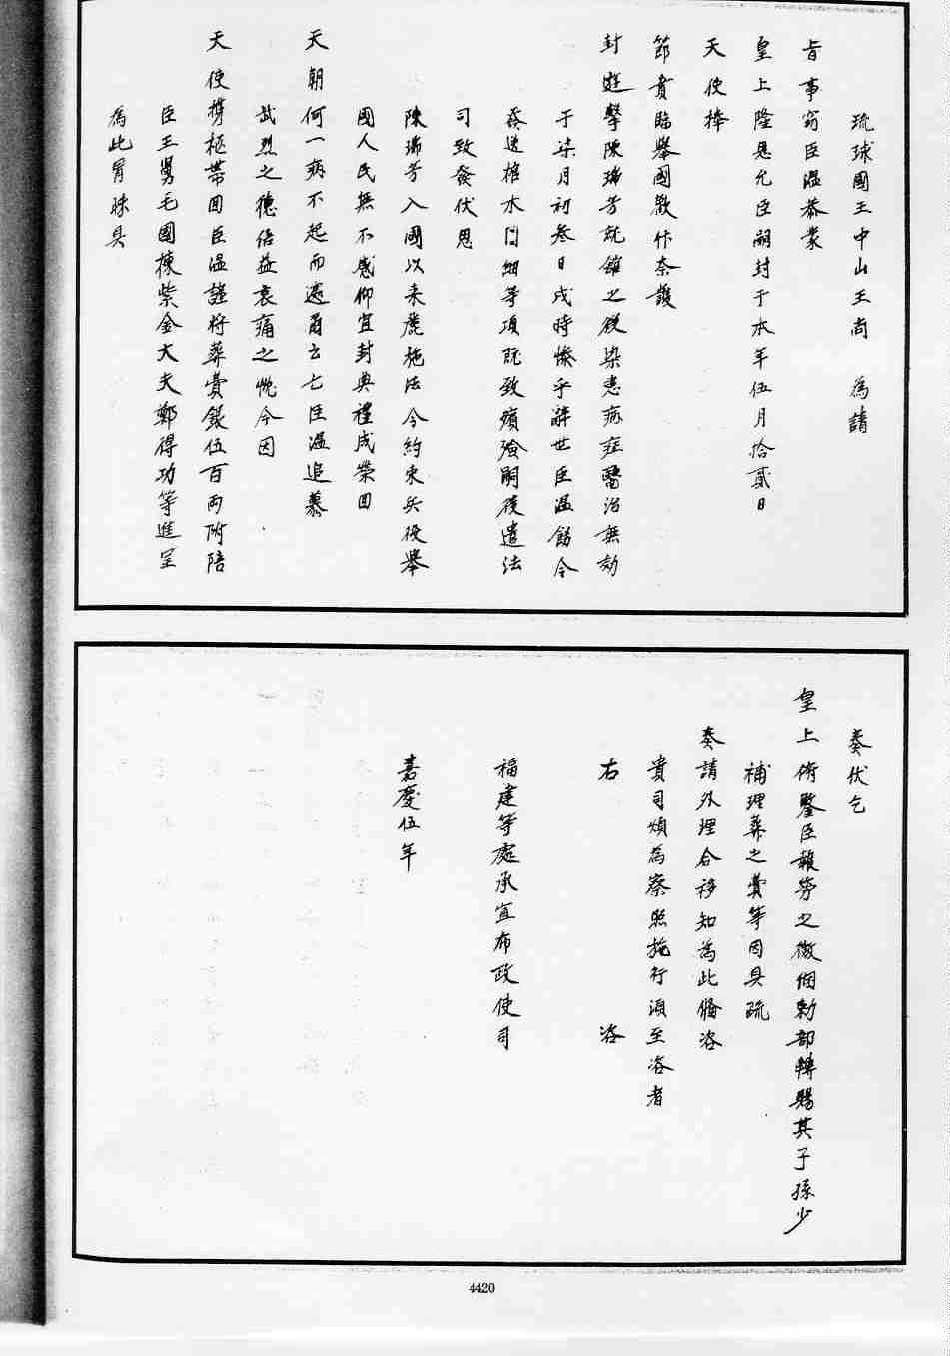 琉球國王中山王尚　為請
旨事窃臣温恭蒙
皇上隆恩允臣嗣封于本年伍月拾貳日
天使捧
節賁臨舉國歡忭奈護
封遊擊陳瑞芳就館之後染患病症醫治無効
于柒月初叁日戌時慘乎辭世臣温飭令
發送棺木口細等項既致殯殮嗣後遣法
司致奠伏思
陳瑞芳入國以来鹿施法令約束兵役舉
國人民無不感仰宜封典禮成榮回
天朝何一病不起而遽爾云亡臣温追慕
武烈之德倍益哀痛之忱今因
天使携柩帶回臣温謹将葬費銀伍百両附陪
臣王舅毛國棟紫金大夫鄭得功等進呈
為此冒昧具
奏伏乞
皇上俯鑒臣報勞之微悃勅部轉賜其子孫少
補理葬之費等因具疏
奏請外理合移知為此備咨
貴司煩為察照施行須至咨者
右　咨
福建等處承宣布政使司
嘉慶伍年
4420